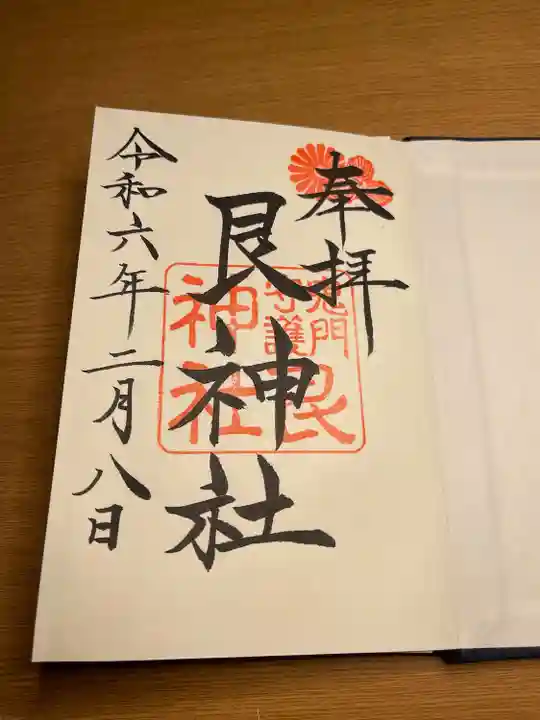 奉拝
艮神社
鬼門
守護
艮
神社
令和六年二月八日